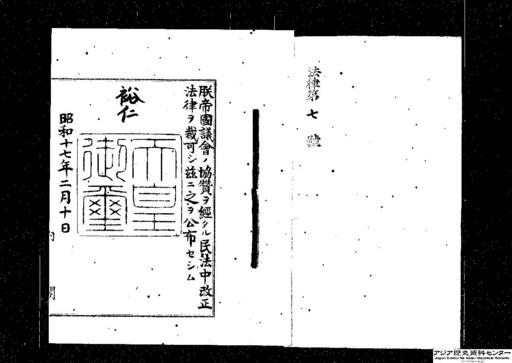 法律第七號
朕帝國議會ノ協贊ヲ經タル民法中改正
法律ヲ裁可シ茲ニ之ヲ公布セシム
裕仁
天皇御璽
昭和十七年二月十日
内閣
アジア歴史資料センター
Japan Center for Asian Historical Records